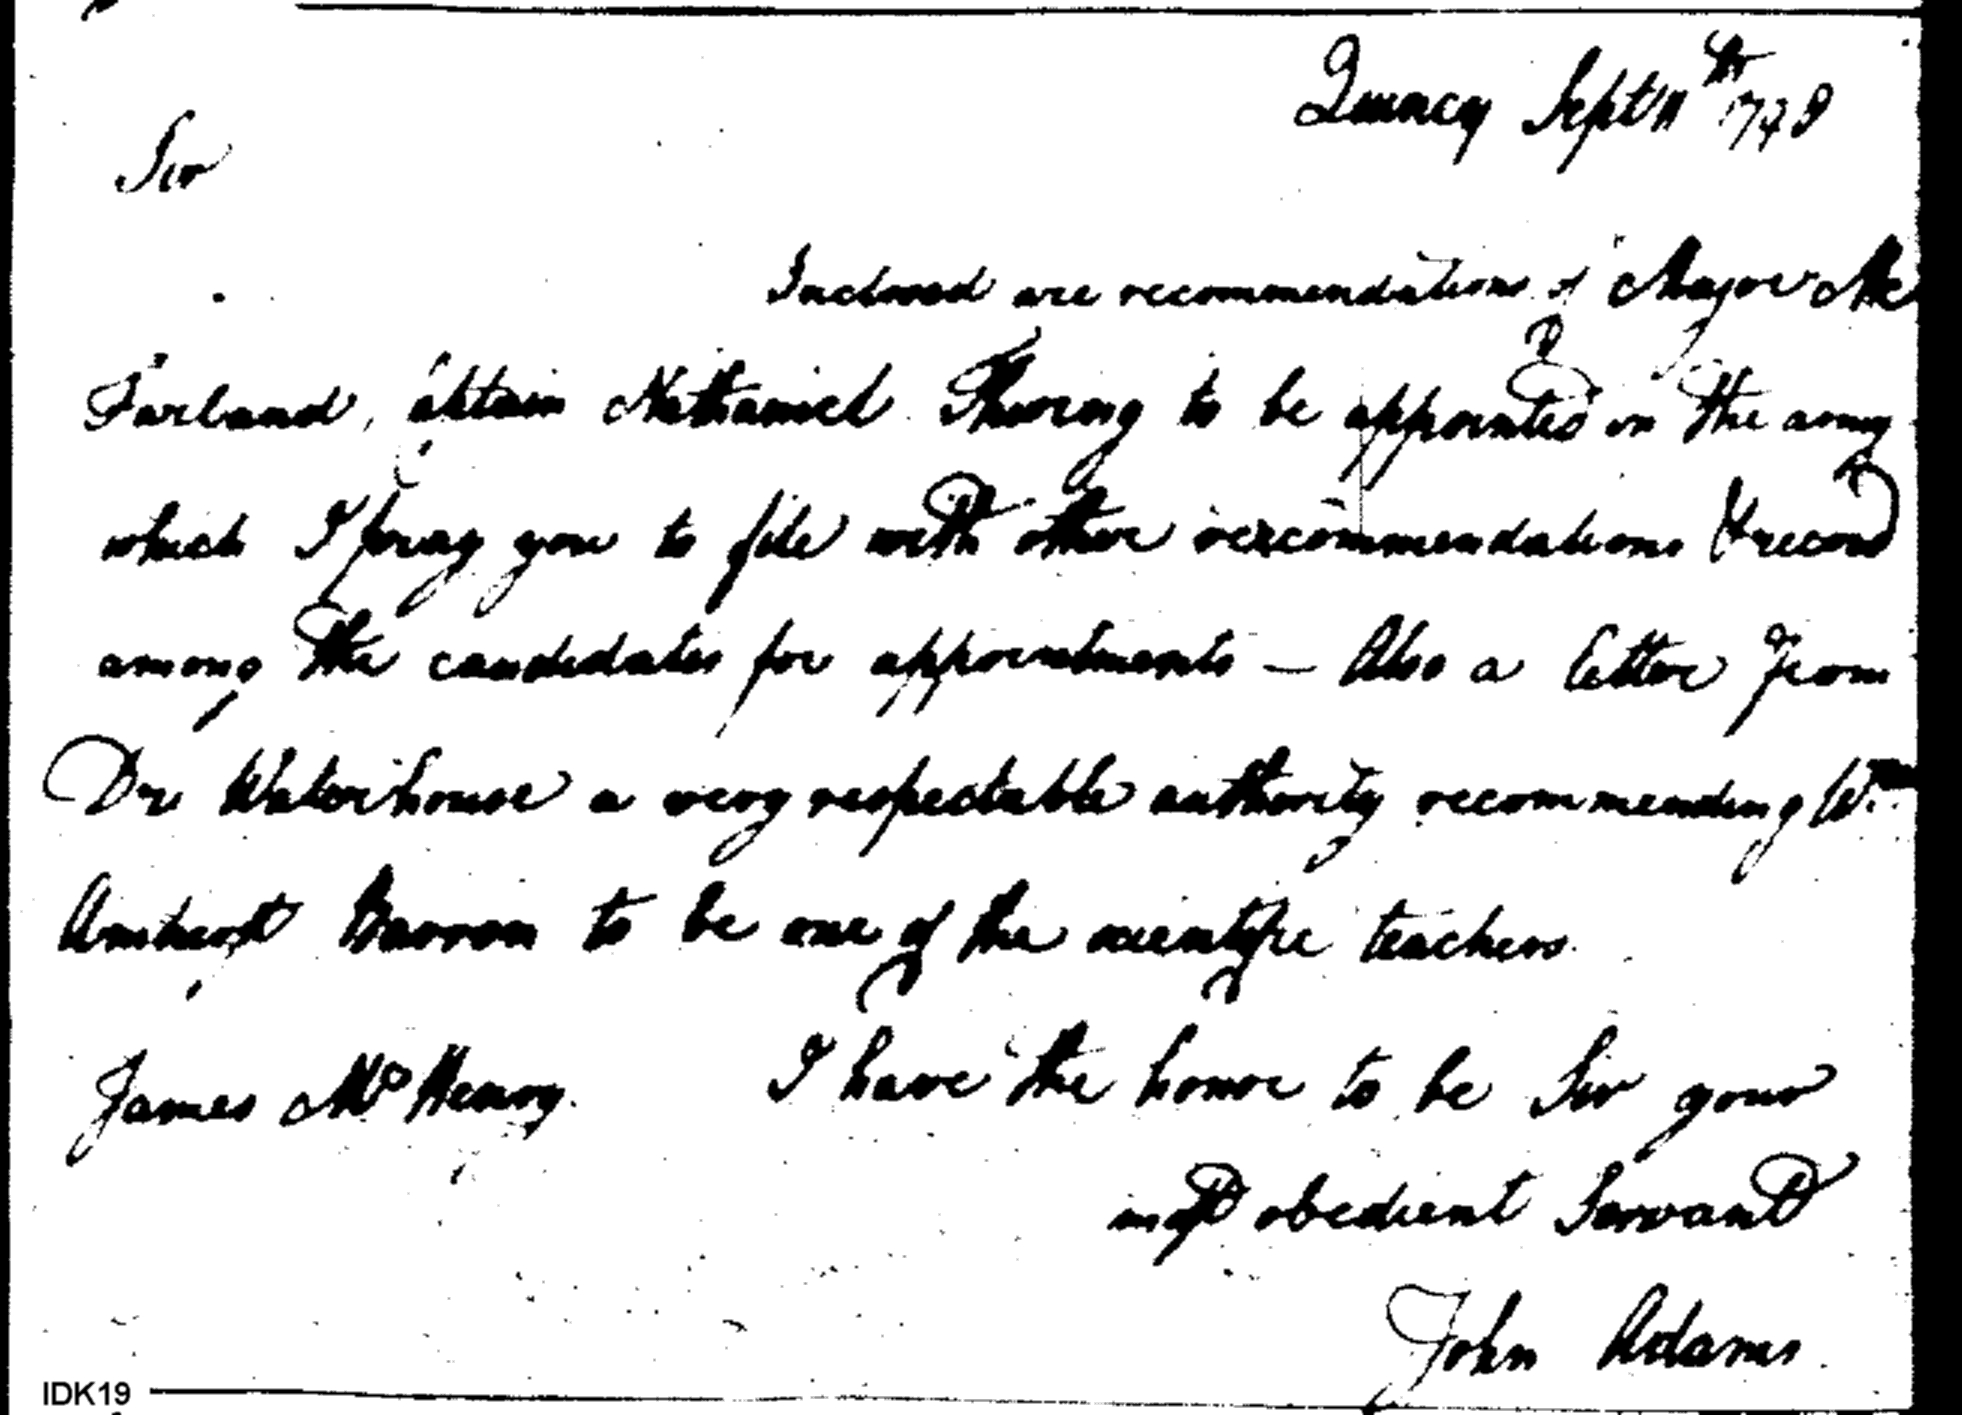 Quincy Sept 11th 1798
Sir
Inclosed are recommendations of Major Mc
Farland, Captain Nathaniel Thwing to be appointed in the army
which I pray you to file with other reccommendations & record
among the candidates for appointments — Also a letter from
Dr Waterhouse a very respectable authority recommending Wm
Amherst Barron to be one of the scientific teachers.
James McHenry. I have the honor to be Sir your
most obedient Servant
John Adams
IDK19